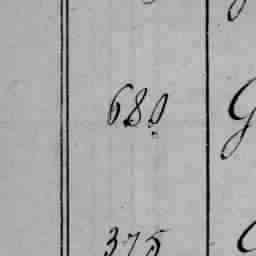 680 G
375